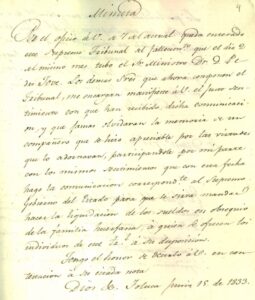 Minuta
4
Por el oficio de V. de 7 del actual queda enterado
este Supremo Tribunal del fallecim.to que el dia 2
del mismo mes tubo el Sr. Ministro Dr. D. Pe-
dro Jove. Los demas Sres. que ahora componen el
Tribunal, me encargan manifieste á V. el just sen-
timiento con que han recibido, dicha comunicaci-
on, y que jamas olvidaran la memoria de un
compañero que se hizo apreciable por las virtudes
que lo adornavan, participandole por mi parte
con los mismos sentimientos que con esta fecha
hago la comunicacion correspond.te al Supremo
Gobierno del Estado para que se sirva mandar
hacer la liquidacion de los sueldos en obsequio
de la familia huerfana, á quien se ofrecen los
individuos de este Tal. á su disposicion.
Tengo el honor de decirlo á V. en con-
testacion á su citada nota
Dios &. Toluca Junio 15 de 1833.